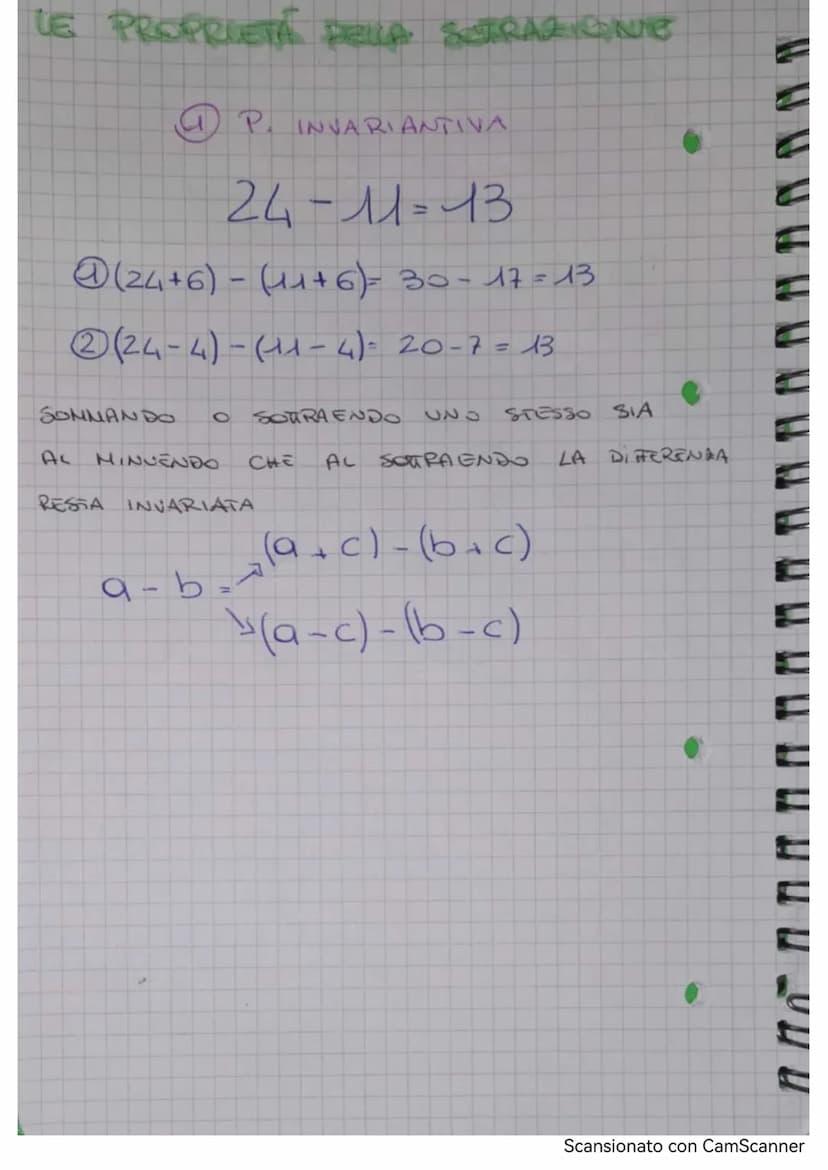 LE PROPRIETÁ DELLA SOTRAZIONE
1 P. INVARIANTIVA
24 - 11 = 13
① (24+6) - (11+6) = 30 - 17 = 13
② (24-4) - (11-4) = 20-7 = 13
SOMMANDO O SOTTRAENDO UNO STESSO SIA
AL MINUENDO CHE AL SOTTRAENDO LA DIFFERENZA
RESTA INVARIATA
(a + c) - (b + c)
a - b =
(a - c) - (b - c)
Scansionato con CamScanner